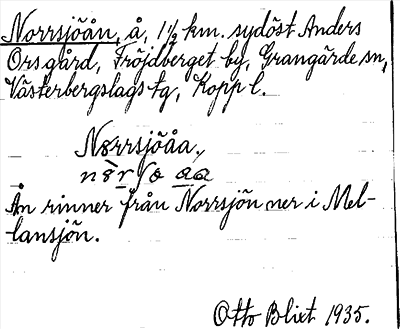 Norrsjöån, å, 1½ km. sydöst Anders
Ors gård, Fröjdberget by, Grangärde sn,
Västerbergslags tg, Kopp l.
Nørrsjöåa,
Ån rinner från Norrsjön ner i Mel-
lansjön.
Otto Blixt 1935.